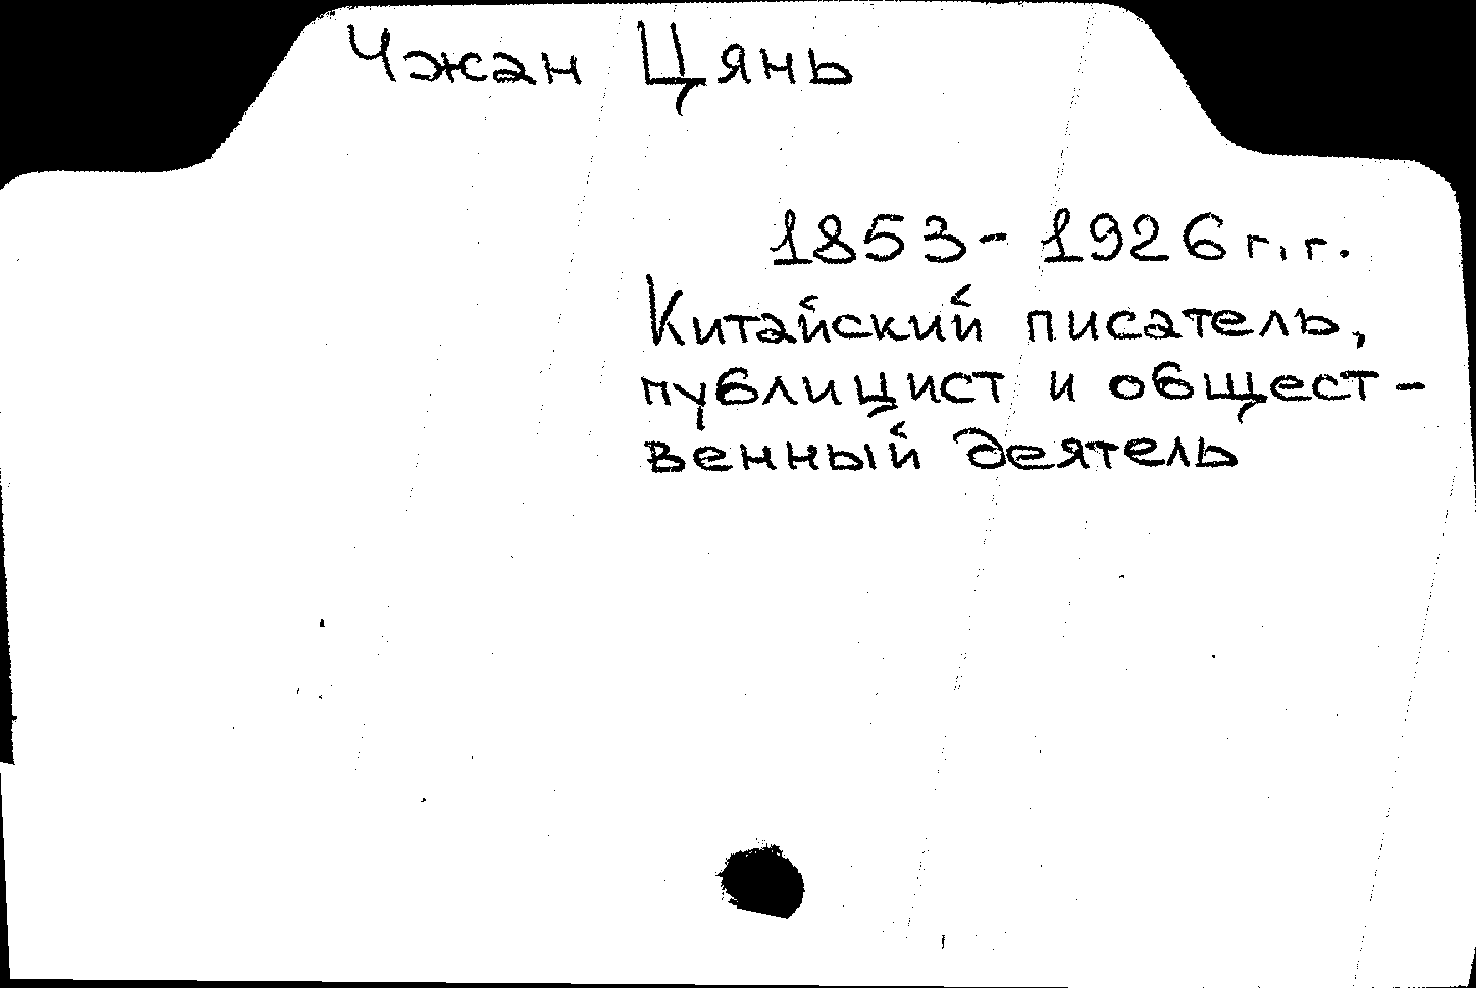 Чжан Цянь
1853-1926 г.г.
Китайский писатель,
публицист и общест-
венный деятель